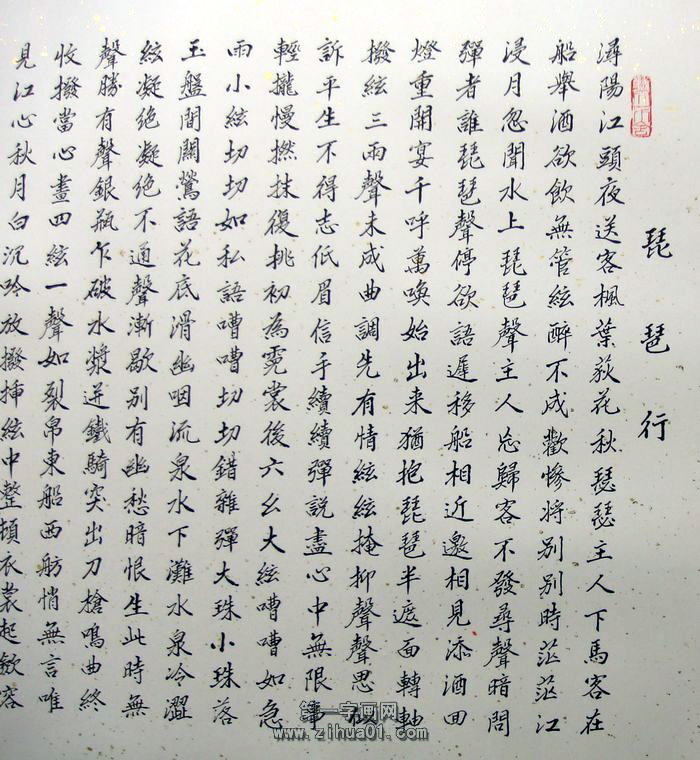 琵琶行
潯陽江頭夜送客楓葉荻花秋瑟瑟主人下馬客在
船舉酒欲飲無管絃醉不成歡慘將別別時茫茫江
浸月忽聞水上琵琶聲主人忘歸客不發尋聲暗問
彈者誰琵琶聲停欲語遲移船相近邀相見添酒回
燈重開宴千呼萬喚始出来猶抱琵琶半遮面轉軸
撥絃三兩聲未成曲調先有情絃絃掩抑聲聲思似
訴平生不得志低眉信手續續彈說盡心中無限事
輕攏慢撚抹復挑初為霓裳後六幺大絃嘈嘈如急
雨小絃切切如私語嘈嘈切切錯雜彈大珠小珠落
玉盤間關鶯語花底滑幽咽流泉水下灘水泉冷澀
絃凝絶凝絶不通聲漸歇別有幽愁暗恨生此時無
聲勝有聲銀瓶乍破水漿迸鐵騎突出刀槍鳴曲終
收撥當心畫四絃一聲如裂帛東船西舫悄無言唯
見江心秋月白沉吟放撥插絃中整頓衣裳起歛容
第一字画网
www.zihua01.com